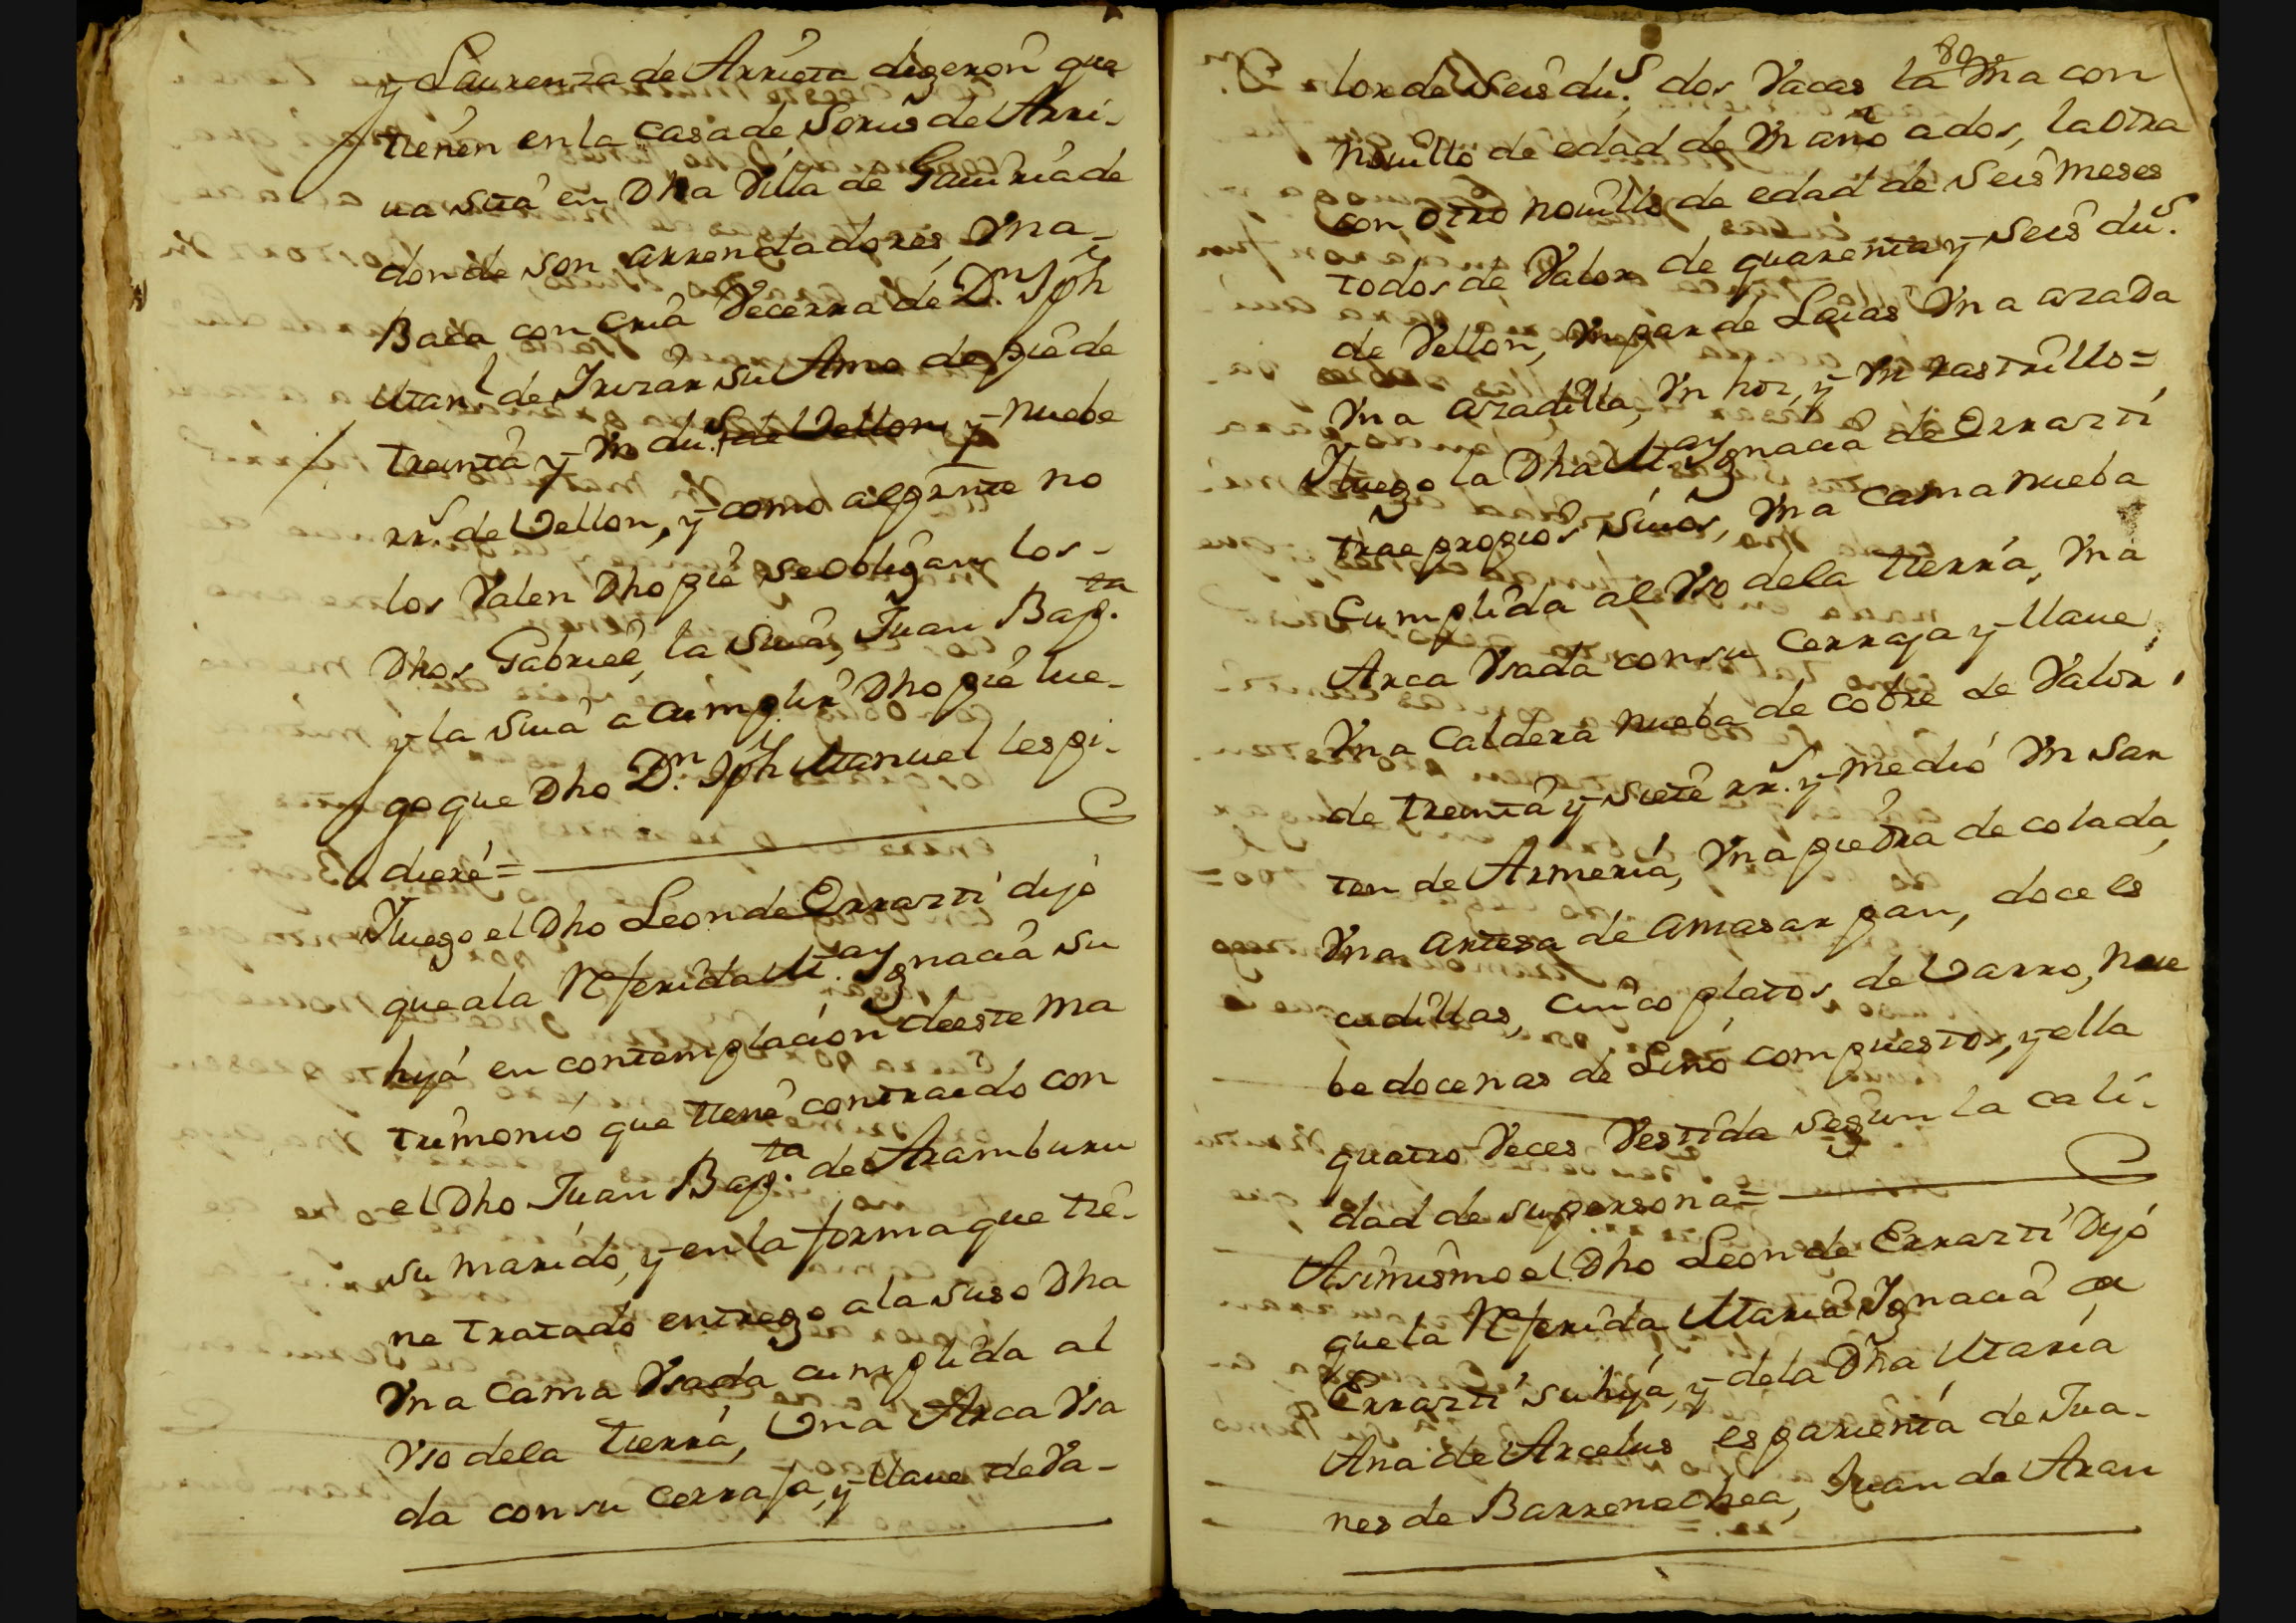 y Laurenza de Arrieta digeron que
tienen en la casa de Sorŭs de Arri-
ua sita en Dha Villa de Gauiria de
donde son arrendadores, Vna-
Baca con cria Vecerra de Dn. Jph
Manl de Irizar su Amo de pie de
treinta y Vn dus. de Vellon y nuebe
rrs. de Vellon, y como al prnte no
los Valen Dho pie se obligan los-
Dhos Gabriel, la Suia, Juan Bapta.
y la suia a cumplir Dho pie lue-
go que Dho Dn. Jph Manuel les pi-
diere=
Yluego el Dho Leon de Errazti dijo
que a la Referida Ma. Ygnacia su
hija en contemplacion de este Ma
trimonio que tiene contraido con
el Dho Juan Bapta. de Aramburu
su marido, y en la forma que tie-
ne tratado entrego a la suso Dha
Vna cama Vsada cumplida al
Vso de la tierra, Vna Arca Vsa
da con su cerraja, y llaue de Va-
80
lor de seis dus. dos Vacas la Vna con
nouillo de edad de Vn año a dos, la otra
con otro nouillo de edad de seis meses
todos de Valor de quarenta y seis dus.
de Vellon, Vn par de Laias Vna azada
Vna azadilla, Vn hoz, y Vn rastrillo=
Yluego la Dha Ma Ygnacia de Errazti
trae propios Suios, Vna cama nueba
cumplida al Vso de la tierra, Vna
Arca Vsada con su cerraja y llaue,
Vna Caldera nueba de cobre de Valor
de treinta y siete rrs. y medio Vn sar
ten de Armeria, Vna piedra de colada,
Vna artesa de amasar pan, doce es
cudillas, cinco platos de Varro, nue
be docenas de Lino compuestos, y ella
quatro Veces Vestida segun la cali-
dad de su persona=
Asimismo el Dho Leon de Errazti Dijo
que la Referida Maria Ygnacia de
Errazti su hija, y de la Dha Maria
Ana de Arcelus es parienta de Jua-
nes de Barrenechea, Juan de Aran